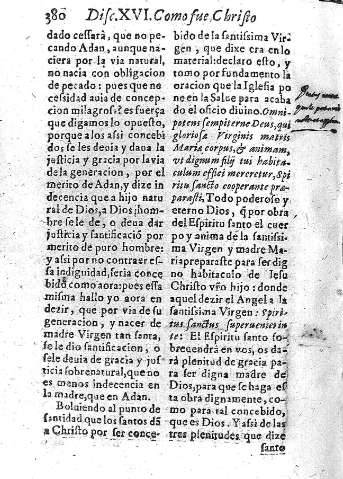 380 Disc. XVI. Como fue Christo
dado cessarà, que no pe-
cando Adan, aunque na-
ciera por la via natural,
no nacia con obligacion
de pecado: pues que ne
cessidad auia de concep-
cion milagrosa? es fuerça
que digamos lo opuesto,
porque a los assi concebi
dos, se les deuia y daua la
justicia y gracia por la via
de la generacion, por el
merito de Adan, y dize in
decencia que a hijo natu
ral de Dios, a Dios hom-
bre se le dè, o deua dar
justicia y santificació por
merito de puro hombre:
y assi por no contraer es-
sa indignidad, seria conce
bido como aora: pues essa
misma hallo yo aora en
dezir, que por via de su
generacion, y nacer de
madre Virgen tan santa,
se le dio santificacion, o
se le deuia de gracia y jus-
ticia sobrenatural, que no
es menos indecencia en
la madre, que en Adan.
Boluiendo al punto de
santidad que los santos dã
a Christo por ser conce-
bido de la santissima Vir
gen, que dixe era en lo
material: declaro esto, y
tomo por fundamento la
oracion que la Iglesia po
ne en la Salue para acaba
do el oficio diuino. Omni-
potens sempiterne Deus, qui
gloriosa Virginis matris
Maria corpus, & animam,
vt dignum filij tui habita-
culum effici mereretur, Spi
ritu sancto cooperante præ-
parasti. Todo poderoso y
eterno Dios, q̃ por obra
del Espiritu santo el cuer
po y anima de la santissi-
ma Virgen y madre Ma-
ria preparaste para ser dig
no habitaculo de Iesu
Christo vr̃o hijo: donde
aquel dezir el Angel a la
santissima Virgen: Spiri-
tus sanctus superueniet in
te: El Espiritu santo so-
breuendrà en vos, os da-
rà plenitud de gracia pa-
ra ser digna madre de
Dios, para que se haga es
ta obra dignamente, co-
mo para tal concebido,
que es Dios. Y assi de las
tres plenitudes que dize
santo